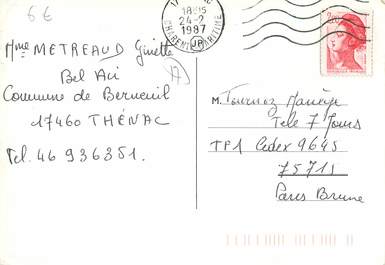 6€
18H15
24-2
1987
CHARENTE MARITIME
2,20
Mme METREAUD Ginette
Bel Air
Commune de Berneuil
17460 THÉNAC
Tel. 46 936351.
M. Tournoz Manège
Tele 7 Jours
TP1 Cedex 9645
75715
Paris Brune